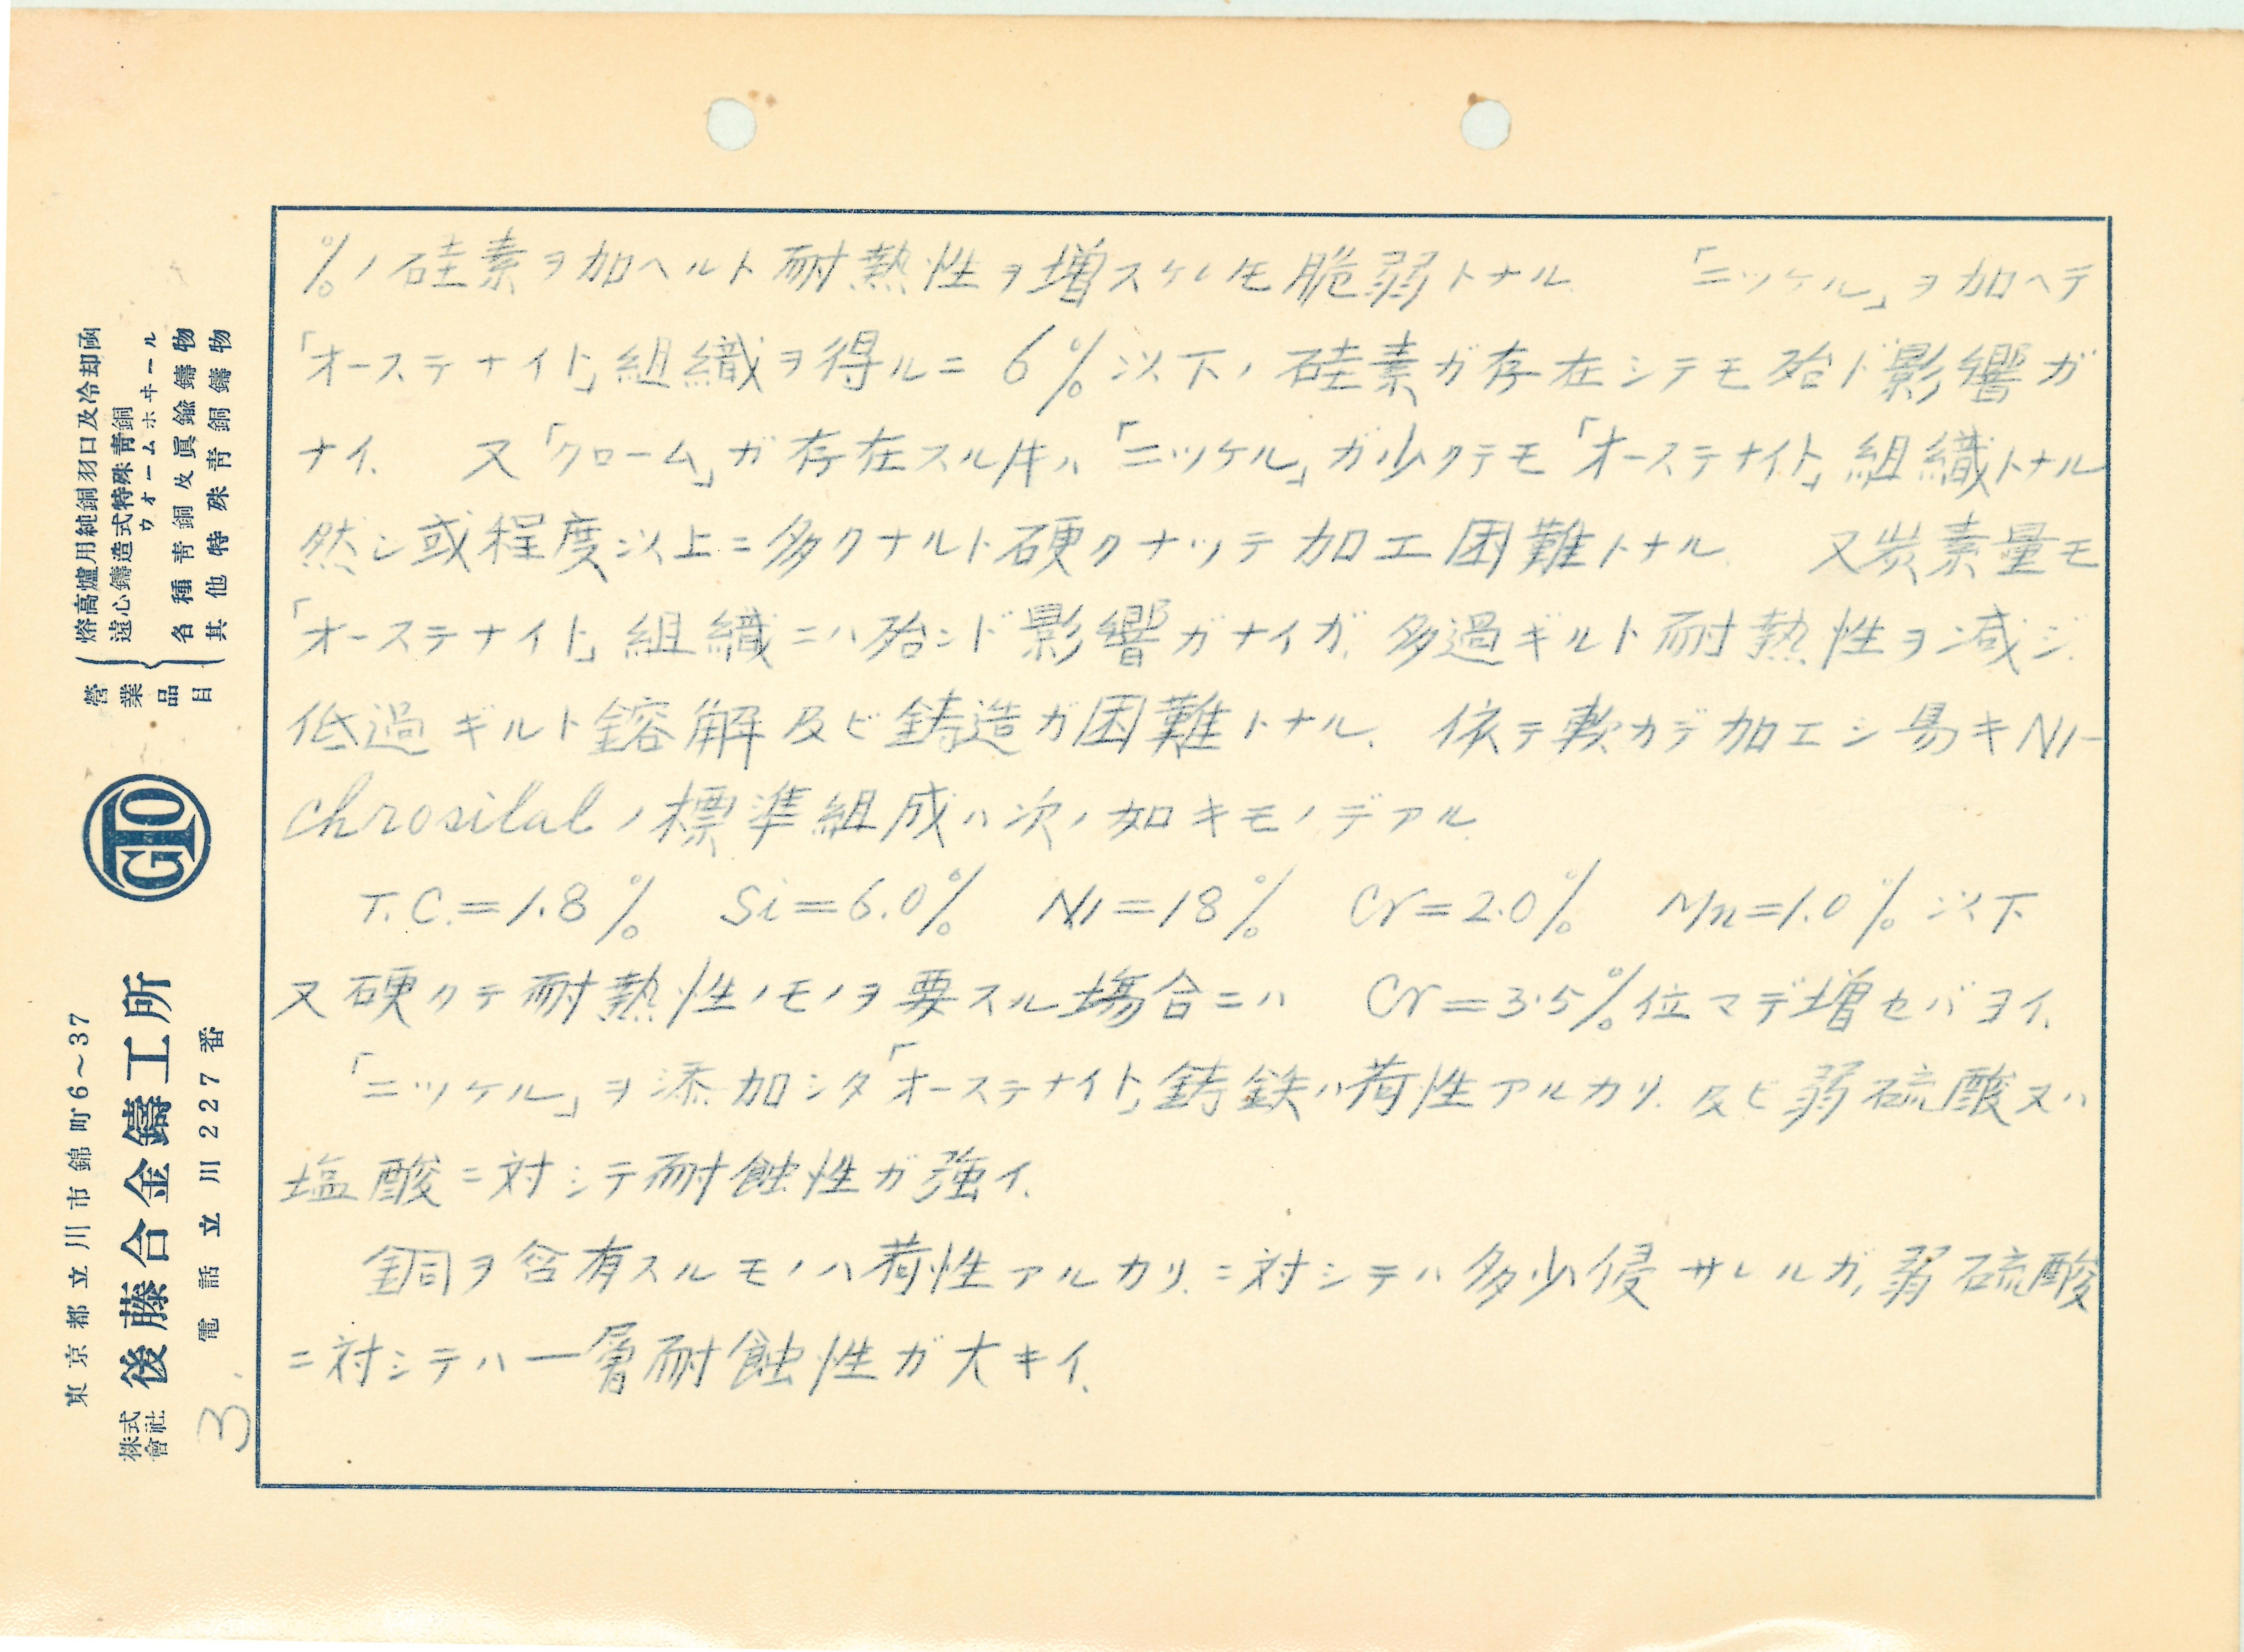 ％ノ硅素ヲ加ヘルト耐熱性ヲ増スケレモ脆弱トナル 「ニッケル」ヲ加ヘテ
「オーステナイト」組織ヲ得ルニ 6％以下ノ硅素ガ存在シテモ殆ド影響ガ
ナイ. 又「クローム」ガ存在スル牛ハ「ニッケル」ガ少クテモ「オーステナイト」組織トナル
然シ或程度以上ニ多クナルト硬クナッテ加工困難トナル. 又炭素量モ
「オーステナイト」組織ニハ殆ンド影響ガナイガ、多過ギルト耐熱性ヲ減ジ.
低過ギルト鎔解及ビ鋳造ガ困難トナル. 依テ軟カデ加工シ易キNi-
chrosilalノ標準組成ハ次ノ如キモノデアル
T.C.=1.8％ Si=6.0％ Ni=18％ Cr=2.0％ Mn=1.0％以下
又硬クテ耐熱性ノモノヲ要スル場合ニハ Cr=3.5％位マデ増セバヨイ.
「ニッケル」ヲ添加シタ「オーステナイト」鋳鉄ハ荷性アルカリ. 及ビ弱硫酸又ハ
塩酸ニ対シテ耐蝕性ガ強イ.
銅ヲ含有スルモノハ荷性アルカリ.ニ対シテハ多少侵サレルガ,弱硫酸
ニ対シテハ一層耐蝕性ガ大キイ.
3.
東京都立川市錦町6～37
株式會社 後藤合金鑄工所
電話立川227番
GTO
營業品目
熔高爐用純銅羽口及冷却凾
遠心鑄造式特殊靑銅
ウオームホヰール
各種靑銅及眞鍮鑄物
其他特殊靑銅鑄物